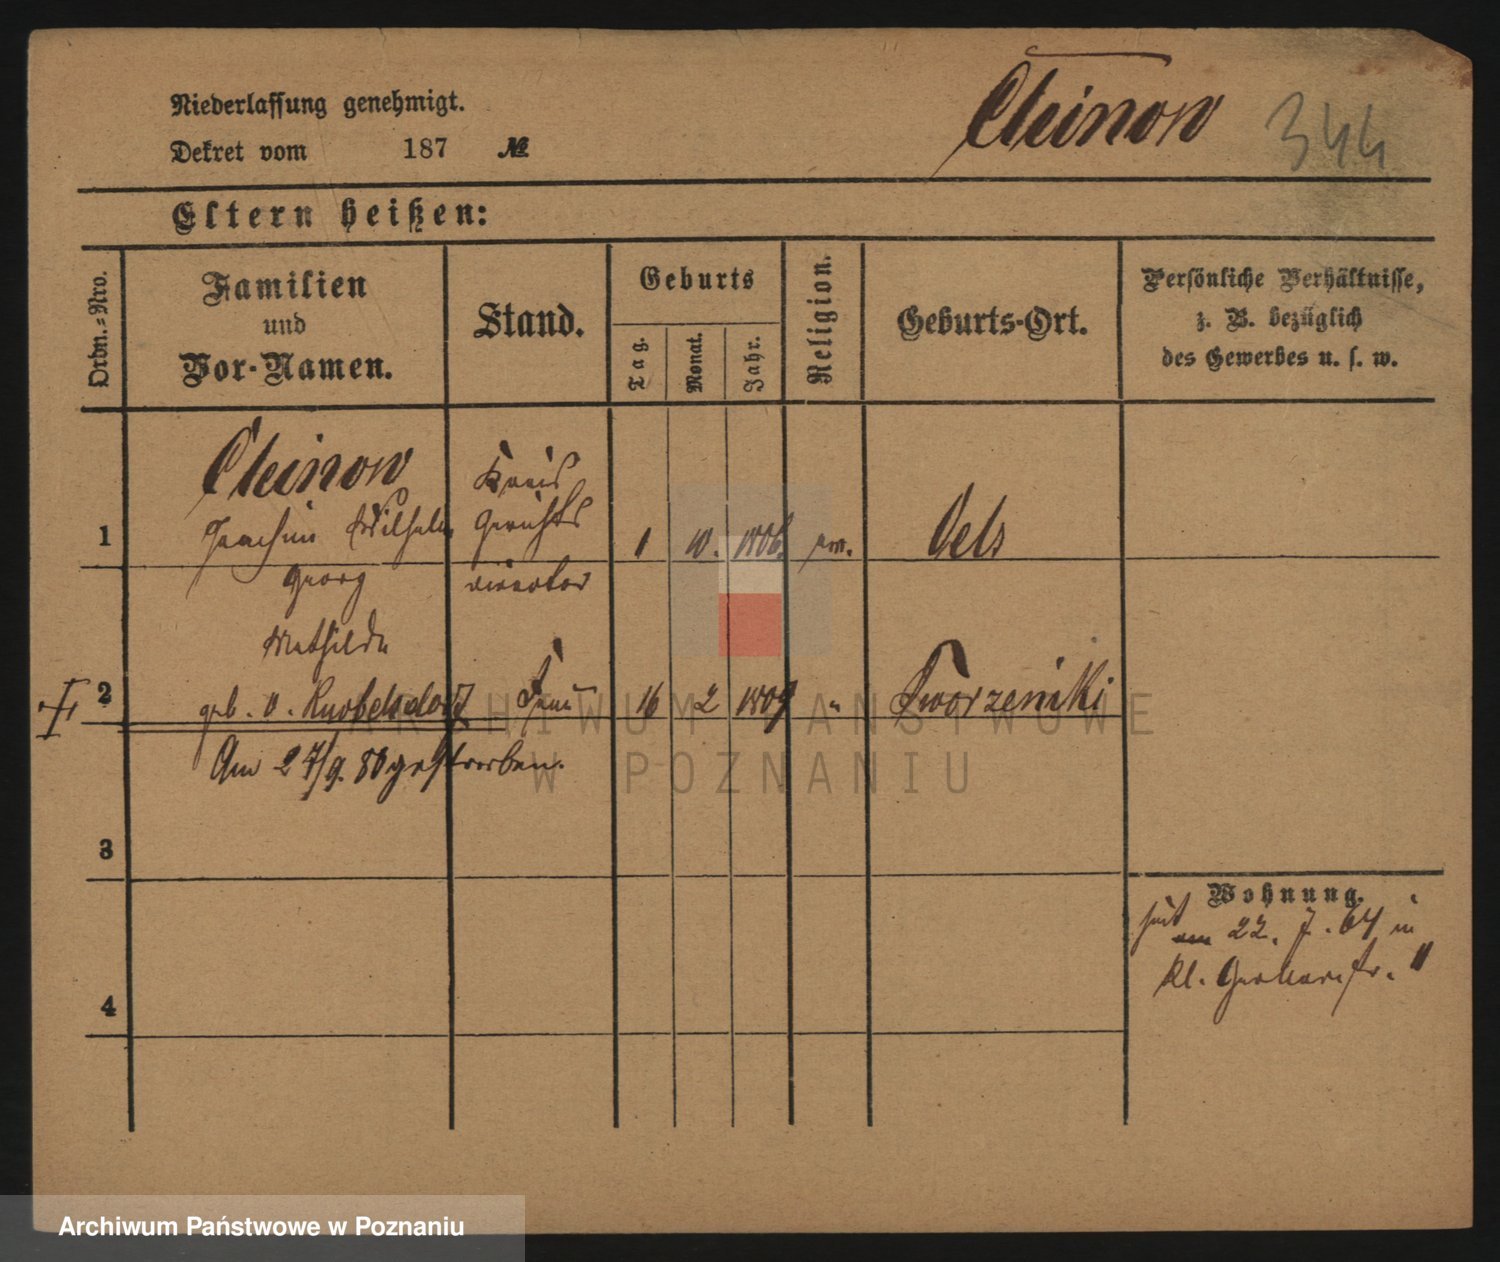 Cleinow 344
Niederlassung genehmigt.
Dekret vom 187 №
Eltern heißen:
Ordn.=Nro.
Familien
und
Vor-Namen.
Stand.
Geburts
Tag.
Monat.
Jahr.
Religion.
Geburts-Ort.
Persönliche Verhältnisse,
z. B. bezüglich
des Gewerbes u. s. w.
Cleinow Kreis
1 Joachim Wilhelm Gerichts 1 10. 1806. ev. Oels
Georg director
Mathilde
2 geb. v. Knobelsdorff Frau 16 2 1809 " Tworzenicki
Am 27/9. 80 gestorben.
3
Wohnung.
seit 22. 7. 64 in
kl. Gerberstr. 11
4
ARCHIWUM PAŃSTWOWE
W POZNANIU
Archiwum Państwowe w Poznaniu